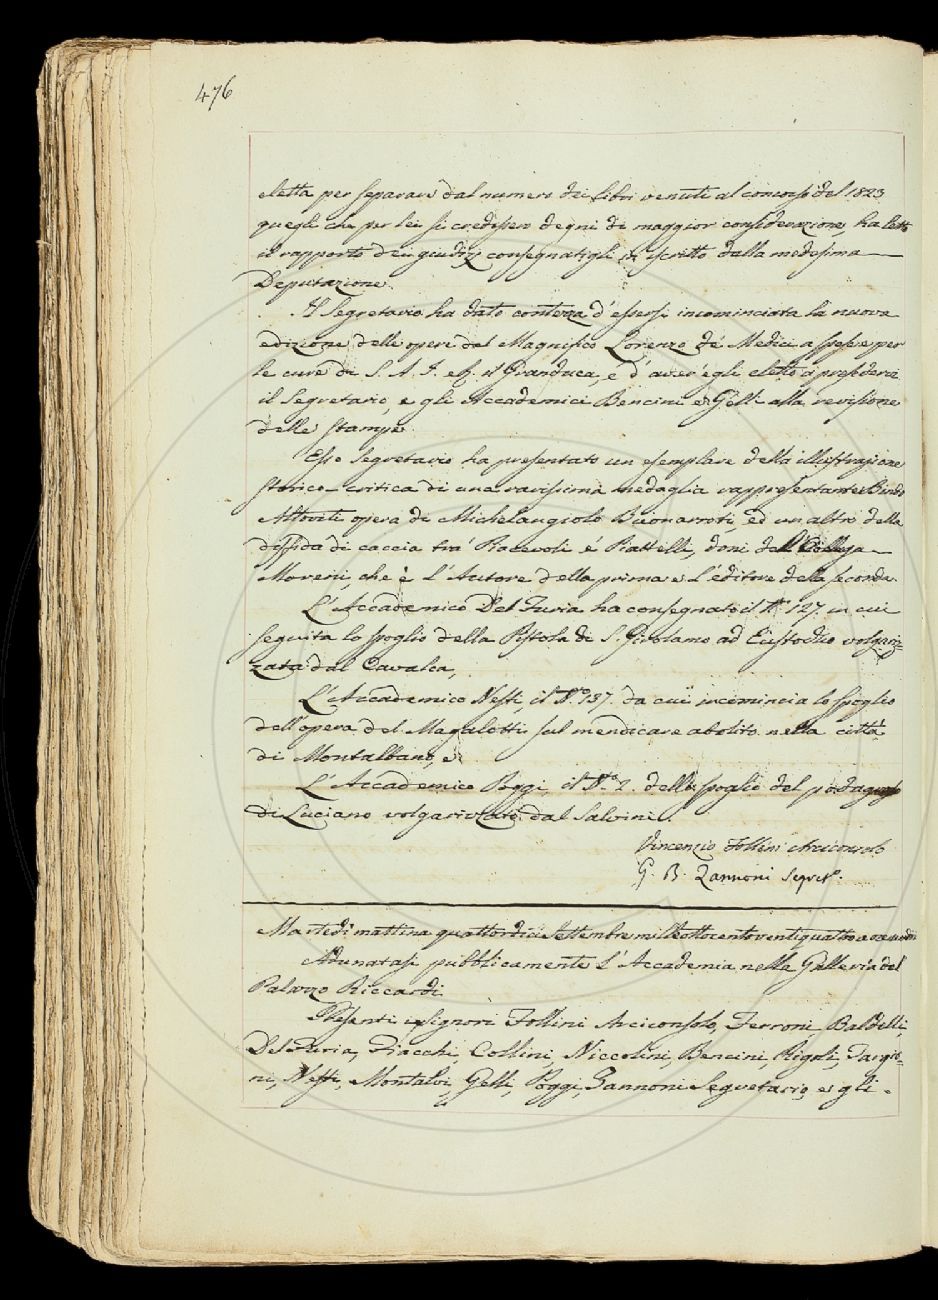 476
eletta per separare dal numero dei libri venuti al concorso del 1823
quegli che per lei si credessero degni di maggior considerazione, ha letto
il rapporto de' giudizj consegnatigli in iscritto dalla medesima
Deputazione.
Il Segretario ha dato contezza d'essersi incominciata la nuova
edizione delle opere del Magnifico Lorenzo de' Medici a spese e per
le cure di S. A. I. e R. il Granduca, e d'aver egli eletto a presedere
il Segretario, e gli Accademici Bencini e Gelli alla revisione
delle stampe.
Esso Segretario ha presentato un esemplare della illustrazione
storico-critica di una rarissima medaglia rappresentante Bindo
Altoviti opera di Michelangiolo Buonarroti, ed un altro della
disfida di caccia tra' Piacevoli e' Piattelli, doni del Collega
Moreni, che è l'Autore della prima e l'editore della seconda.
L'Accademico Del Furia ha consegnato il N.º 127. in cui
seguita lo spoglio della Pistola di S. Girolamo ad Eustochio volgariz=
zata dal Cavalca,
L'Accademico Nesti, il N.º 137 da cui incomincia lo spoglio
dell'opera del Magalotti sul mendicare abolito nella città
di Montalbano, e
L'Accademico Poggi, il N.º 2. dello spoglio del podagroso
di Luciano volgarizzato dal Salvini.
Vincenzio Follini Arciconsolo
G. B. Zannoni Segret.º
Martedì mattina quattordici Settembre mille ottocento ventiquattro a ore undici
Adunatasi pubblicamente l'Accademia nella Galleria del
Palazzo Riccardi
Presenti i Signori Follini Arciconsolo, Ferroni, Baldelli,
Del Furia, Fiacchi, Collini, Niccolini, Bencini, Rigoli, Targio=
ni, Nesti, Montalvi, Gelli, Poggi, Zannoni Segretario, e gli